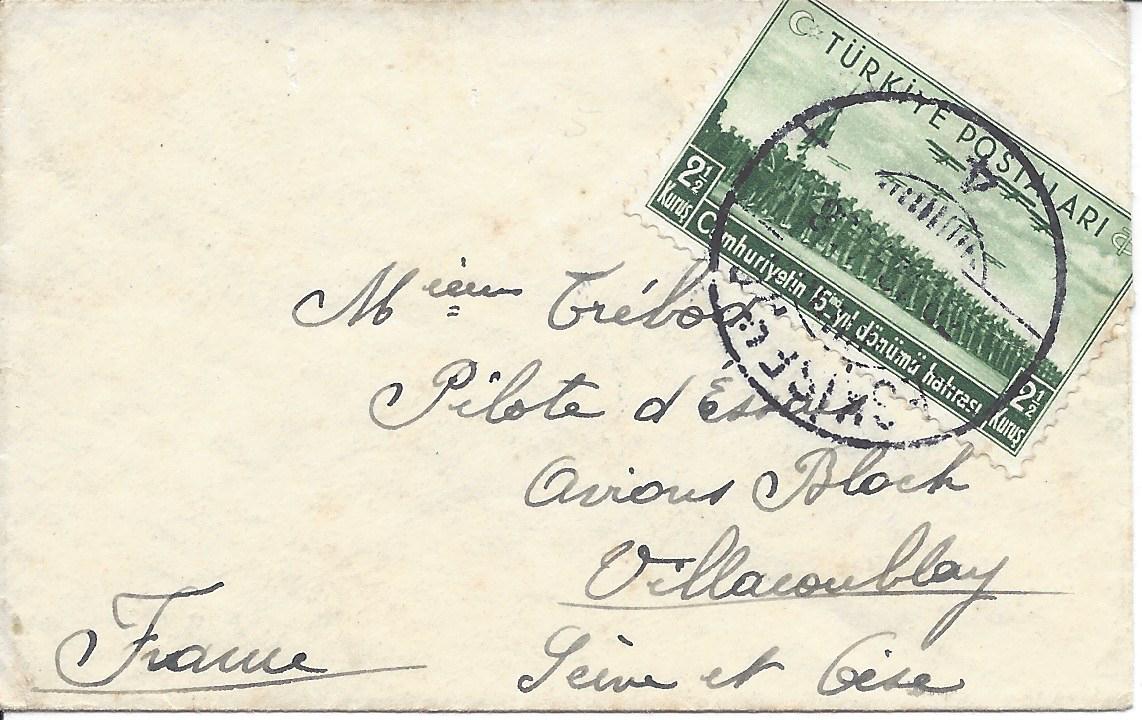 TÜRKİYE POSTALARI
2½ Kuruş
Cumhuriyetin 15inci yıl dönümü hatırası
2½ Kuruş
Trébod
Pilote d'Essais
Avions Bloch
Villacoublay
Seine et Oise
France